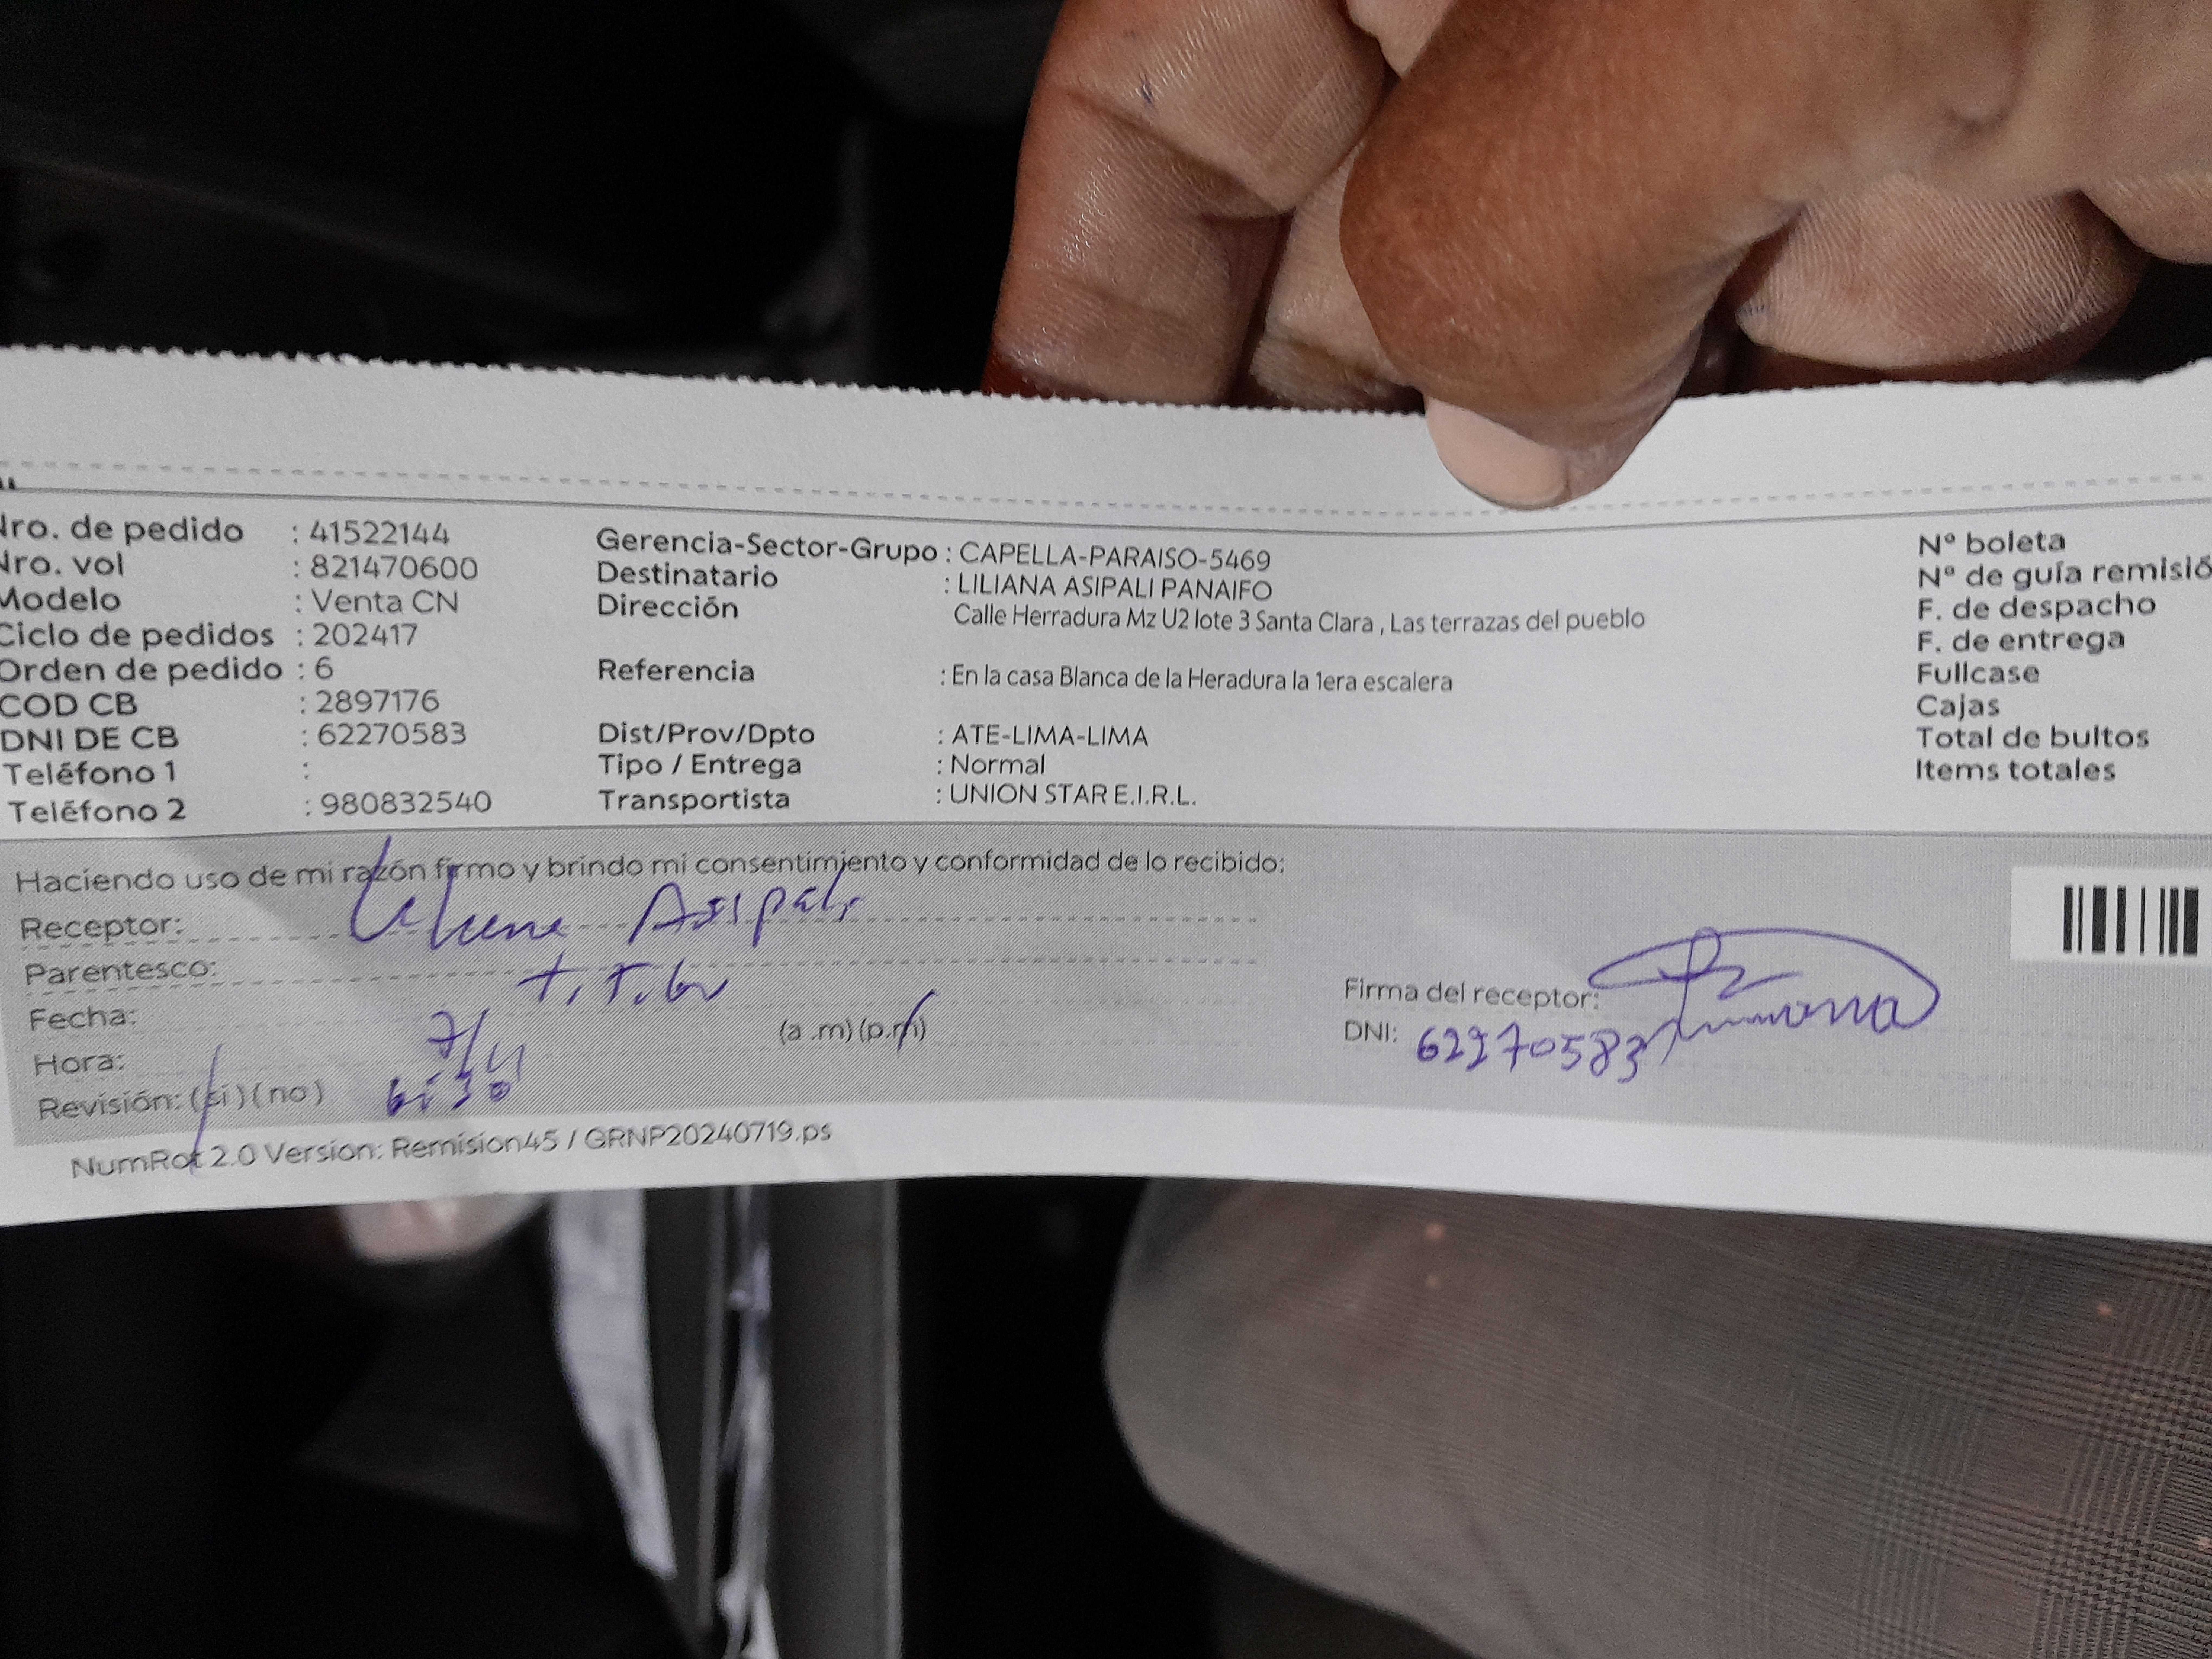 Nro. de pedido : 41522144
Nro. vol : 821470600
Modelo : Venta CN
Ciclo de pedidos : 202417
Orden de pedido : 6
COD CB : 2897176
DNI DE CB : 62270583
Teléfono 1 :
Teléfono 2 : 980832540
Gerencia-Sector-Grupo : CAPELLA-PARAISO-5469
Destinatario : LILIANA ASIPALI PANAIFO
Dirección Calle Herradura Mz U2 lote 3 Santa Clara , Las terrazas del pueblo
Referencia : En la casa Blanca de la Heradura la 1era escalera
Dist/Prov/Dpto : ATE-LIMA-LIMA
Tipo / Entrega : Normal
Transportista : UNION STAR E.I.R.L.
Nº boleta
Nº de guía remisió
F. de despacho
F. de entrega
Fullcase
Cajas
Total de bultos
Items totales
Haciendo uso de mi razón firmo y brindo mi consentimiento y conformidad de lo recibido:
Receptor: Asipali
Parentesco:
Fecha: 7/11
Hora: 6:30 (a .m) (p.m)
Revisión: (si) (no)
Firma del receptor:
DNI: 62270583
NumRot 2.0 Version: Remision45 / GRNP20240719.ps